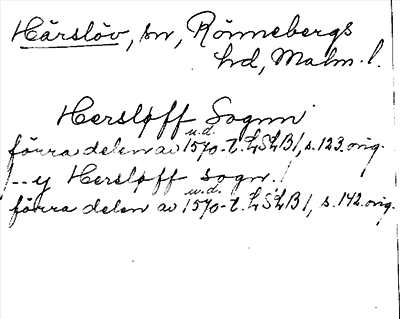 Härslöv, sn, Rönnebergs
hd, Malm. l.
Hersløff Sognn
u.d.
förra delen av 1570-t. LSLB1, s. 123. orig.
... y Hersløff sogn.
u.d.
förra delen av 1570-t. LSLB1, s. 142. orig.